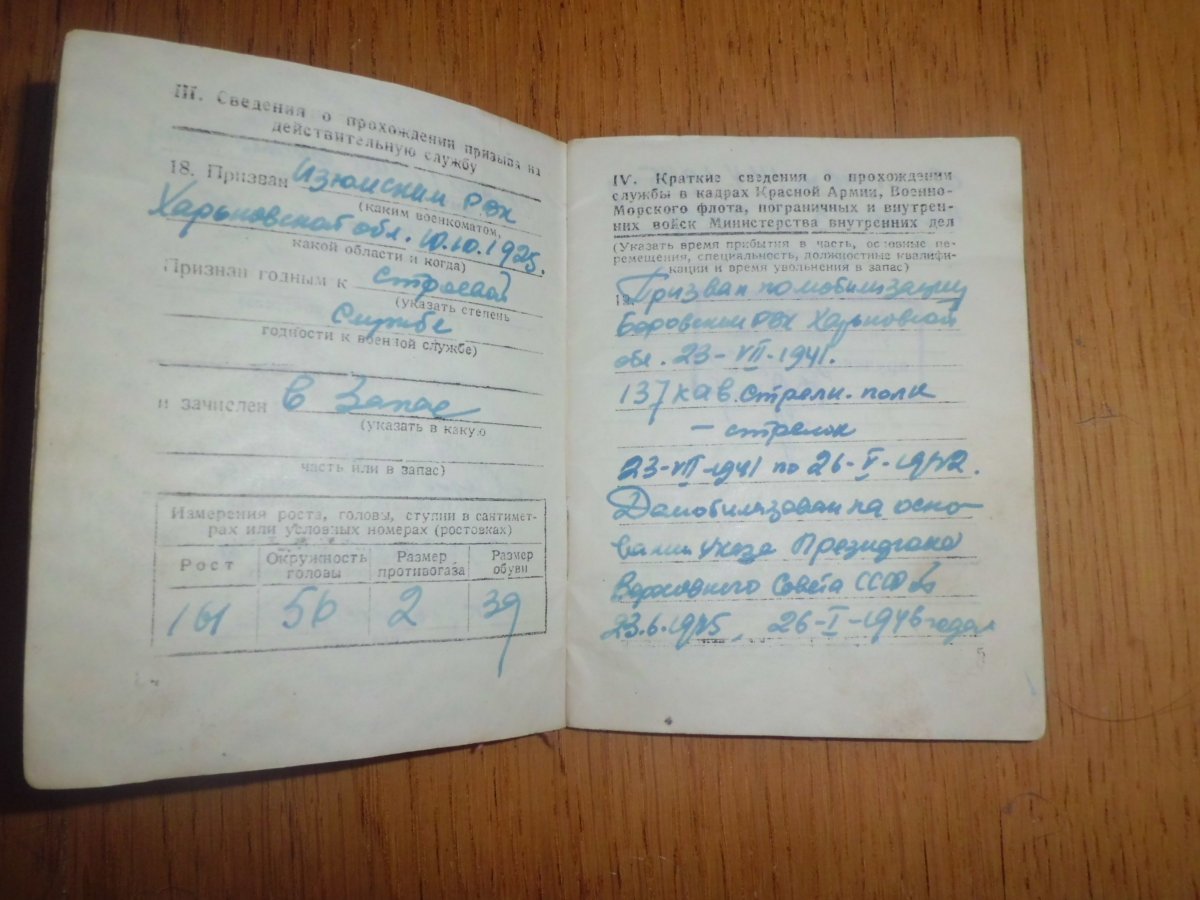 III. Сведения о прохождении призыва на
действительную службу
18. Призван Изюмским РВК
(каким военкоматом,
Харьковской обл. 10.10.1925.
какой области и когда)
Признан годным к строевой
(указать степень
службе
годности к военной службе)
и зачислен в запас
(указать в какую
часть или в запас)
Измерения роста, головы, ступни в сантимет-
рах или условных номерах (ростовках)
Рост Окружность головы Размер противогаза Размер обуви
161 56 2 39
IV. Краткие сведения о прохождении
службы в кадрах Красной Армии, Военно-
Морского флота, пограничных и внутрен-
них войск Министерства внутренних дел
(Указать время прибытия в часть, основные пе-
ремещения, специальность, должностные квалифи-
кации и время увольнения в запас)
19. Призван по мобилизации
Боровским РВК Харьковской
обл. 23-VII-1941.
137 кав. стрелк. полк
— стрелок
23-VII-1941 по 26-V-1942.
Демобилизован на осно-
вании Указа Президиума
Верховного Совета СССР от
23.6.1945, 26-I-1946 года
5